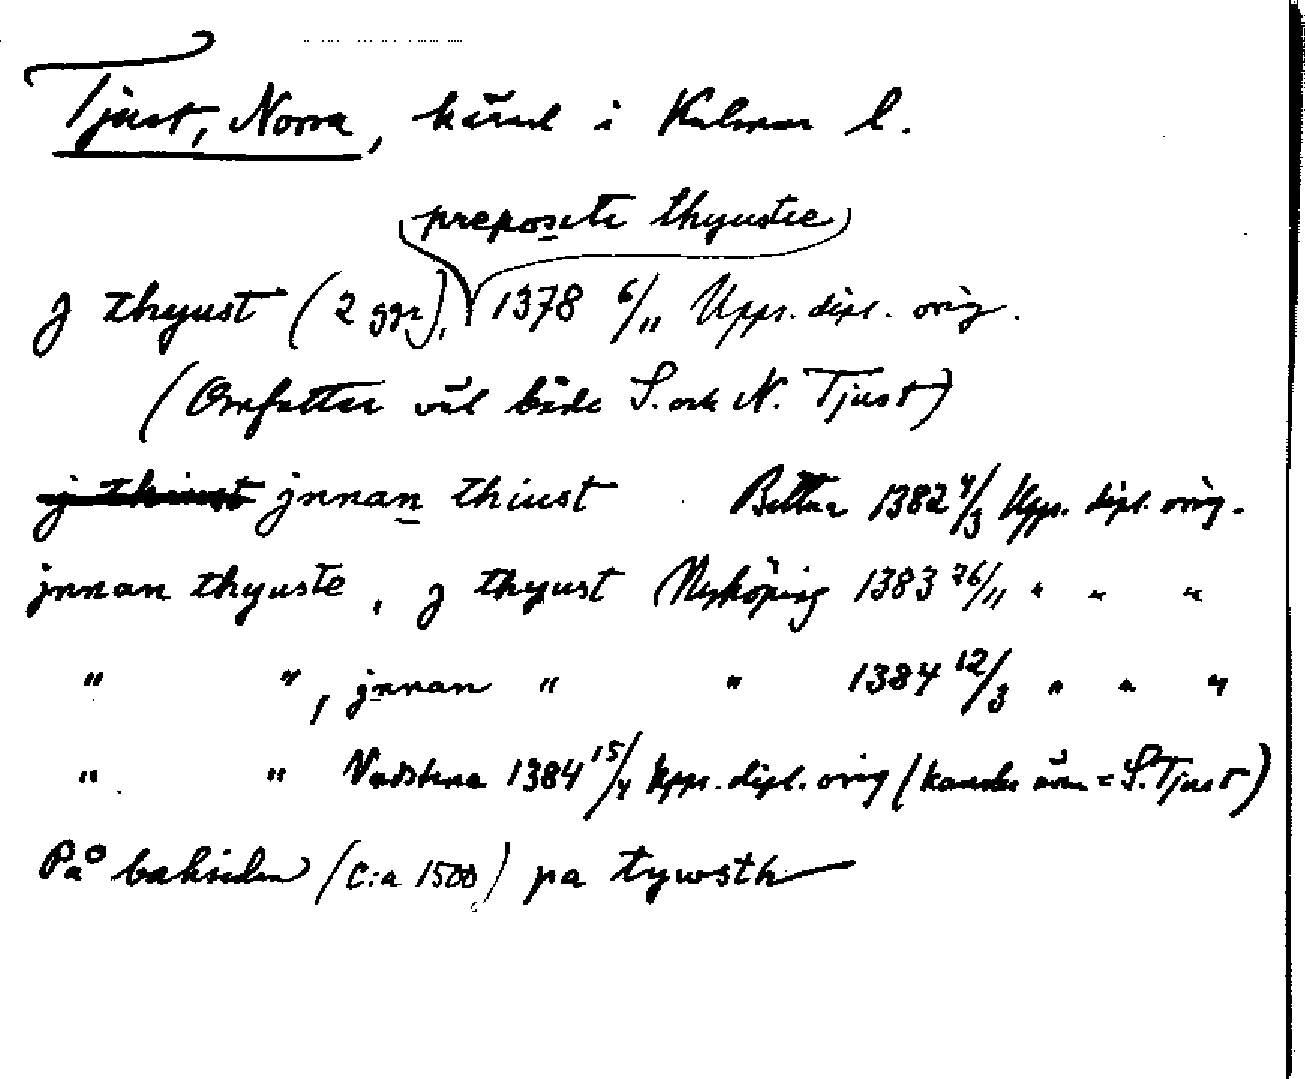 Tjust, Norra, härad i Kalmar l.
preposite thyustie
j thyust (2 ggr), 1378 6/11 Upps. dipl. orig.
(Omfattar väl både S. och N. Tjust)
j thiust jnnan thiust Bettna 1382 4/3 Upps. dipl. orig.
jnnan thyuste, j thyust Nyköping 1383 26/11 " " "
" ", jnnan " " 1384 12/3 " " "
" " Vadstena 1384 15/4 Upps. dipl. orig (kanske även = S. Tjust)
På baksidan (c:a 1500) pa tywsth